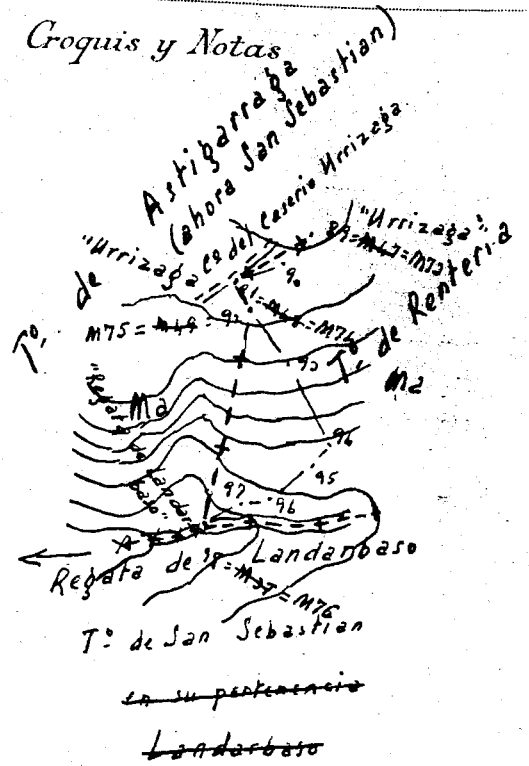 Croquis y Notas
Astigarraga
(ahora San Sebastian)
Tº. de
"Urrizaga
Cº del Caserio Urrizaga
"Urrizaga"
89=M47=M73
90
91=M48=M74
M75=M49=92
Tº. de Renteria
Ma
Ma
"Regata de Landarbaso"
93
94
95
96
97
Regata de Landarbaso
98=M37=M76
Tº de San Sebastian
en su pertenencia
Landarbaso